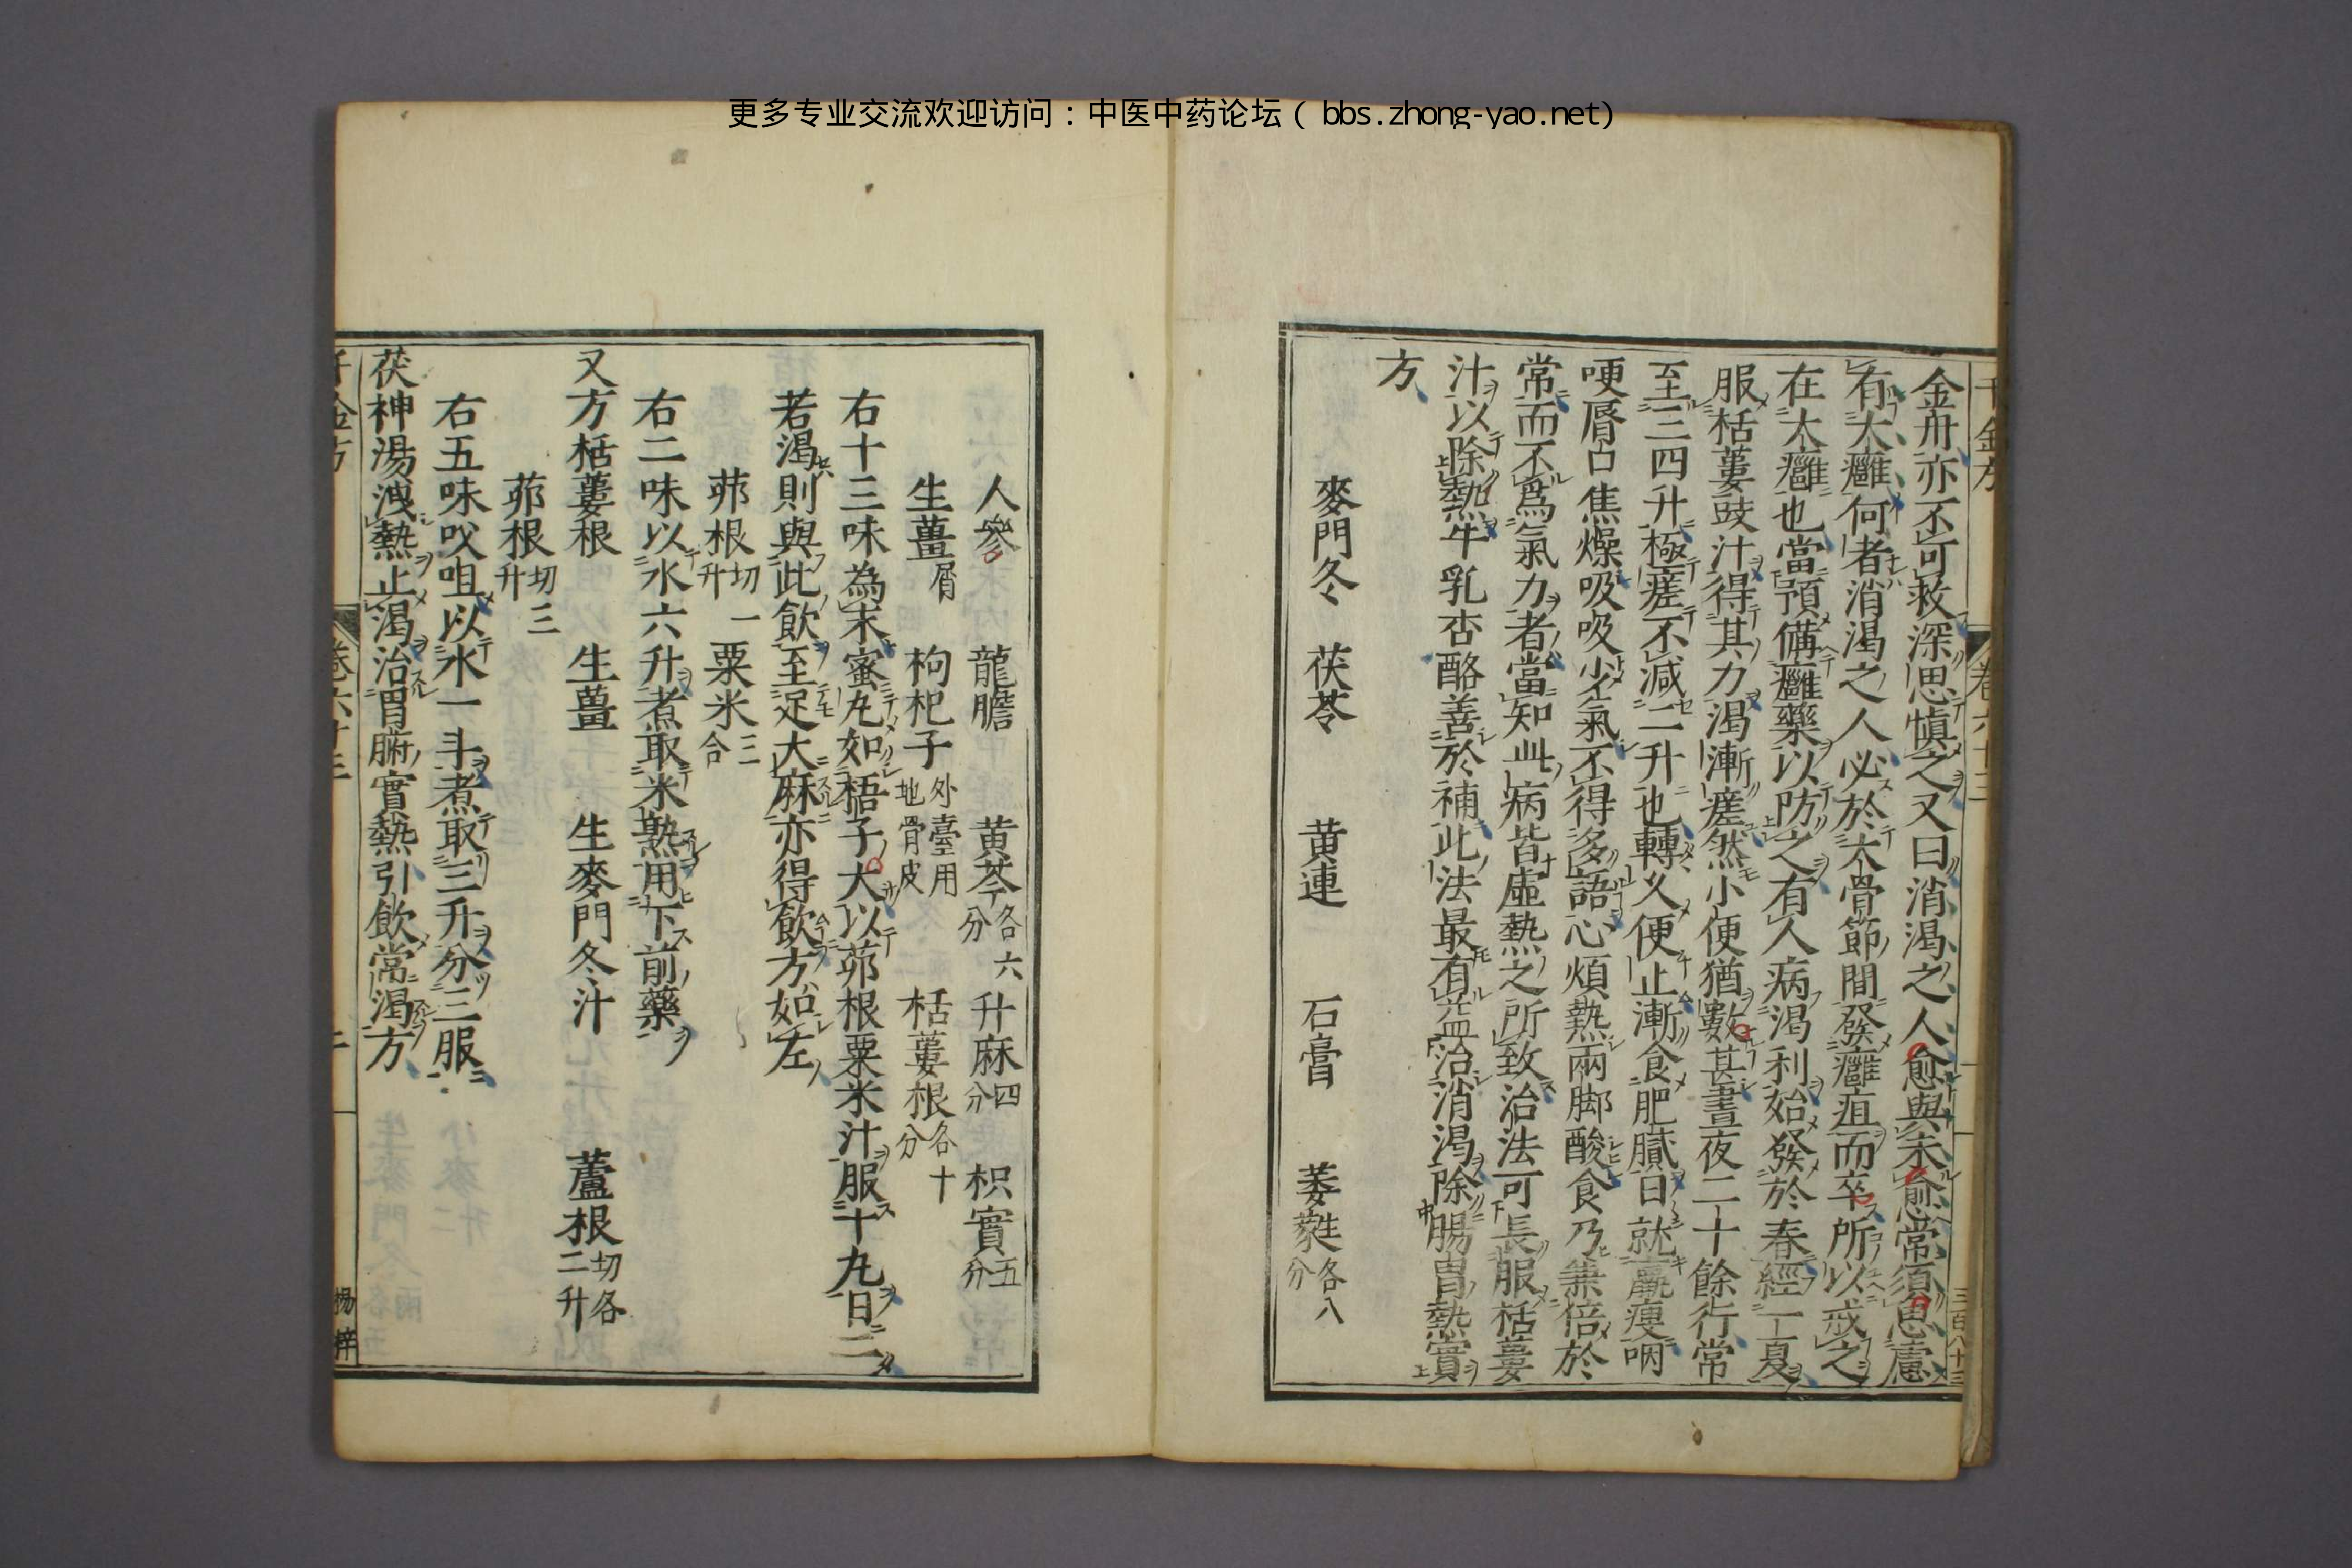 更多专业交流欢迎访问：中医中药论坛（bbs.zhong-yao.net）
千金方
卷六十三
三百八十三
金丹亦不可救深思慎之又曰消渴之人愈與未愈常須思慮
有大癰何者消渴之人必於大骨節間發癰疽而卒所以戒之
在大癰也當預備癰藥以防之有人病渴利始發於春經一夏
服栝蔞豉汁得其力渴漸瘥然小便猶數甚晝夜二十餘行常
至三四升極瘥不減二升也轉久便止漸食肥膩日就羸瘦咽
哽脣口焦燥吸吸少氣不得多語心煩熱兩脚酸食乃兼倍於
常而不爲氣力者當知此病皆虛熱之所致治法可長服栝蔞
汁以除熱牛乳杏酪善於補此法最有益治消渴除腸胃熱實
方
麥門冬 茯苓 黄連 石膏 萎蕤各八分
人參 龍膽 黄芩各六分 升麻四分 枳實五分
生薑屑 枸杞子外臺用地骨皮 栝蔞根各十分
右十三味為末蜜丸如梧子大以茆根粟米汁服十丸日二
若渴則與此飲至足大麻亦得飲方如左
茆根切一升 粟米三合
右二味以水六升煮取米熟用下前藥
又方栝蔞根 生薑 生麥門冬汁 蘆根切各二升
茆根切三升
右五味㕮咀以水一斗煮取三升分三服
茯神湯洩熱止渴治胃腑實熱引飲常渴方
千金方
卷六十三
二
楊梓